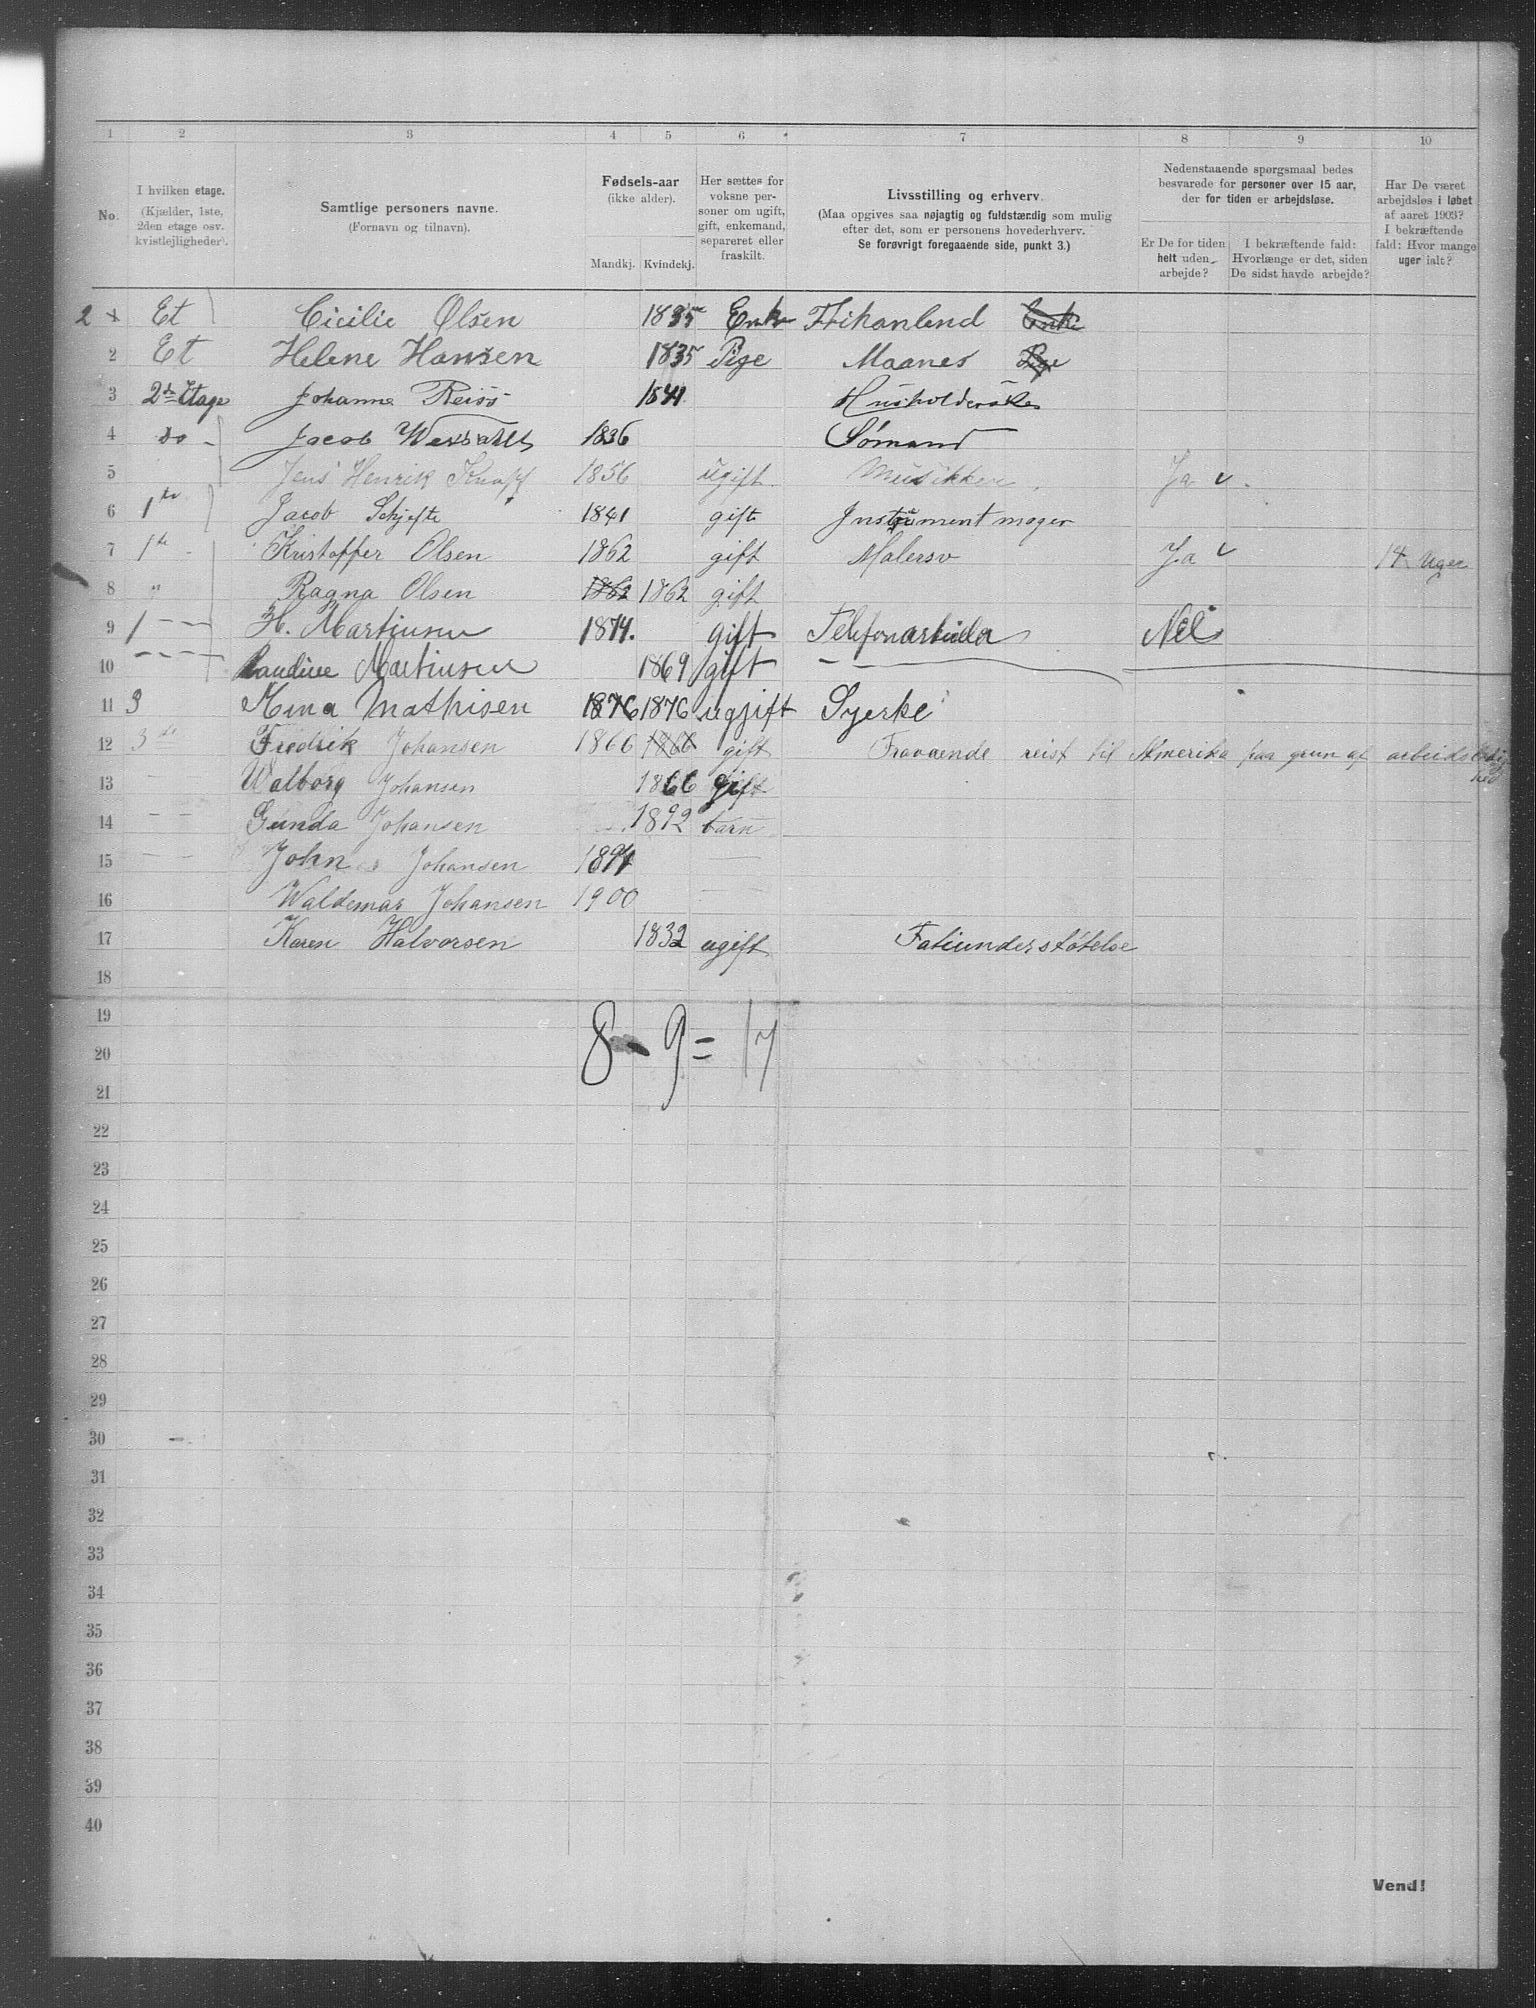 1 2 3 4 5 6 7 8 9 10
No.
I hvilken etage.
(Kjælder, 1ste, 2den etage osv. kvistlejligheder).
Samtlige personers navne.
(Fornavn og tilnavn).
Fødsels-aar
(ikke alder).
Mandkj. Kvindekj.
Her sættes for voksne personer om ugift, gift, enkemand, separeret eller fraskilt.
Livsstilling og erhverv.
(Maa opgives saa nøjagtig og fuldstændig som mulig efter det, som er personens hovederhverv.
Se forøvrigt foregaaende side, punkt 3.)
Nedenstaaende spørgsmaal bedes besvarede for personer over 15 aar, der for tiden er arbejdsløse.
Er De for tiden helt uden arbejde?
I bekræftende fald: Hvorlænge er det, siden De sidst havde arbejde?
Har De været arbejdsløs i løbet af aaret 1903? I bekræftende fald: Hvor mange uger ialt?
2 Et Cicilie Olsen 1835 Enke Enke
2 Et Helene Hansen 1835 Pige Maanes
3 2den Etage Johanne Reiss 1841
4 do Jacob 1836 Sømand
5 Jens Henrik 1856 ugift Musikker Ja
6 1ste Jacob Schjefte 1841 gift Instrument mager
7 1ste Kristoffer Olsen 1862 gift Malersv Ja 14 Uger
8 " Ragna Olsen 1862 1862 gift
9 1 H. Martinsen 1874. gift Telefonarbeider Nei
10 Martinsen 1869 gift
11 3 Mathisen 1876 1876 ugjift Syerke
12 3de Fredrik Johansen 1866 1866 gift Fravænde reist til Amerika paa grun af arbeids
13 Walborg Johansen 1866 gift
14 Gunda Johansen 1892 barn
15 John Johansen
16 Waldemar Johansen 1900
17 Karen Halvorsen 1832 ugift
18
19
8 - 9 = 17
20
21
22
23
24
25
26
27
28
29
30
31
32
33
34
35
36
37
38
39
40
Vend!